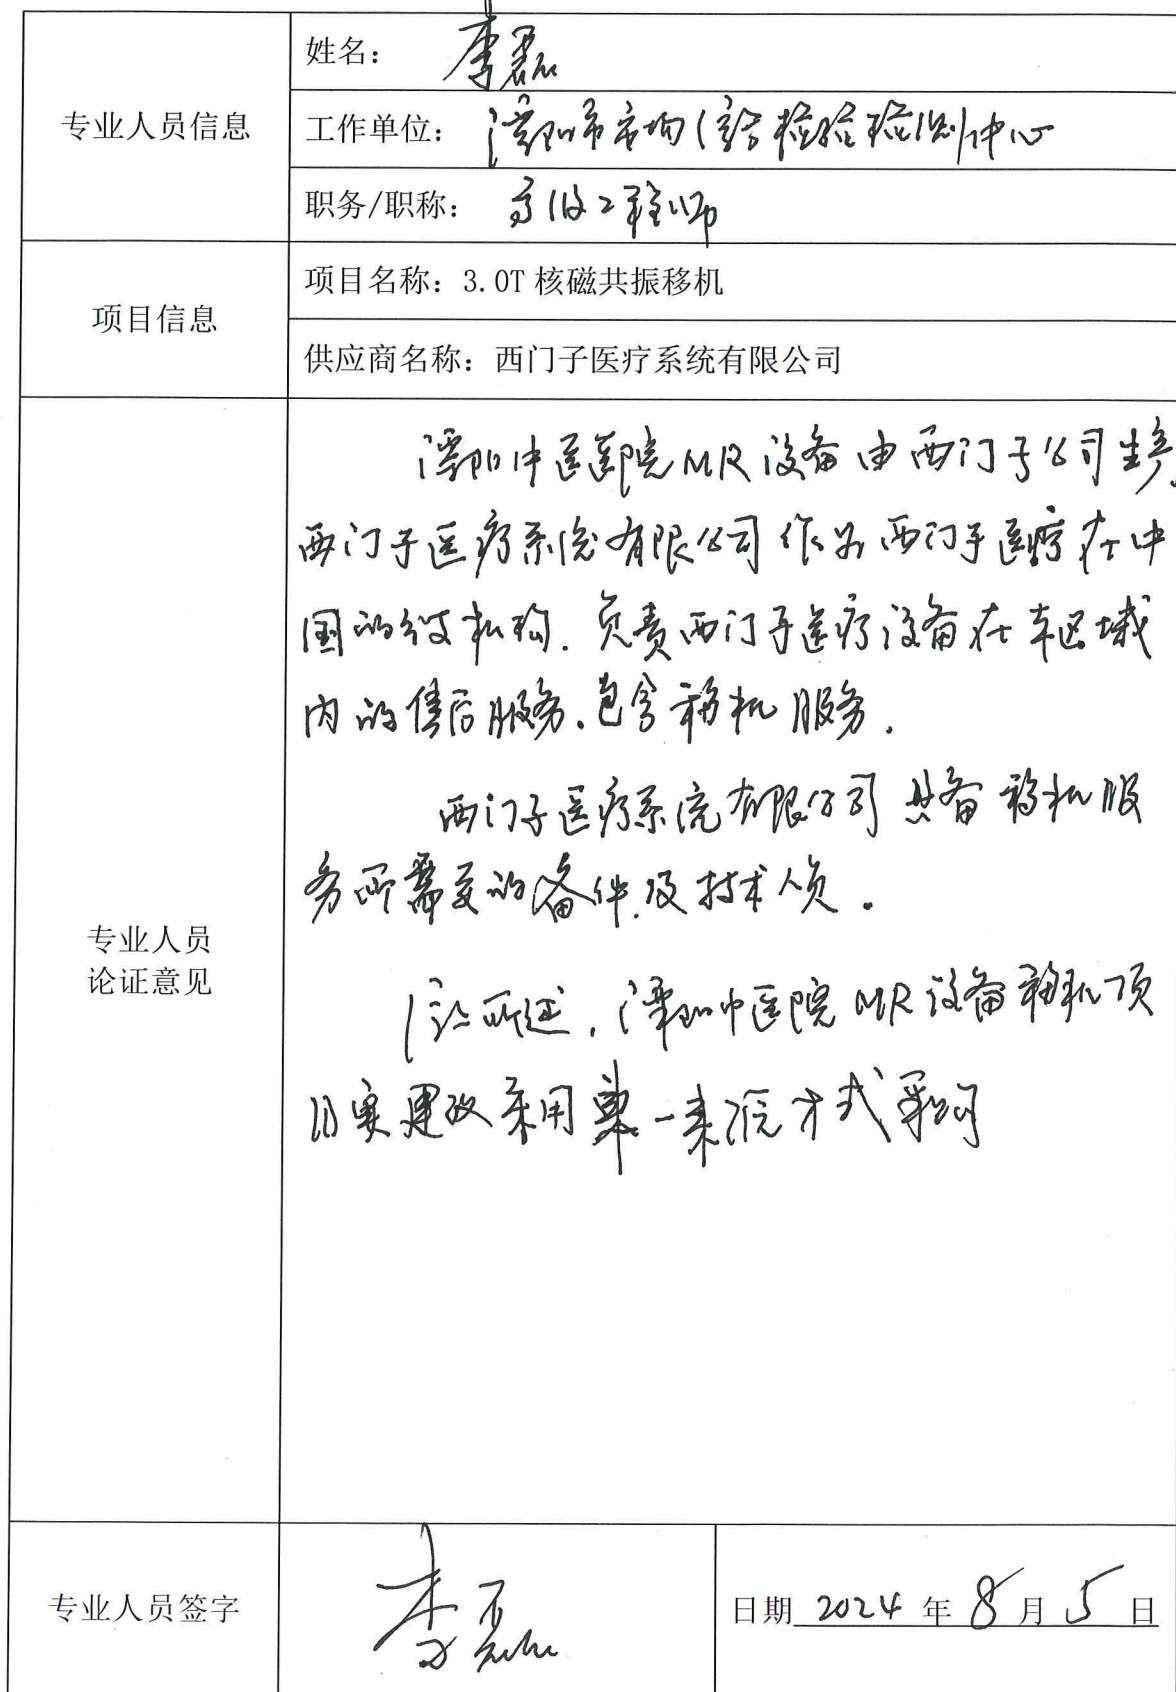 专业人员信息
姓名: 李磊
工作单位: 溧阳市市场综合检验检测中心
职务/职称: 高级工程师
项目信息
项目名称: 3.0T 核磁共振移机
供应商名称: 西门子医疗系统有限公司
专业人员
论证意见
溧阳中医医院MR设备由西门子公司生产,
西门子医疗系统有限公司作为西门子医疗在中
国的分支机构. 负责西门子医疗设备在本区域
内的售后服务.包含移机服务.
西门子医疗系统有限公司具备移机服
务所需要的备件及技术人员.
综上所述,溧阳中医院MR设备移机项
目 建议采用单一来源方式采购
专业人员签字
李磊
日期 2024 年 8 月 5 日